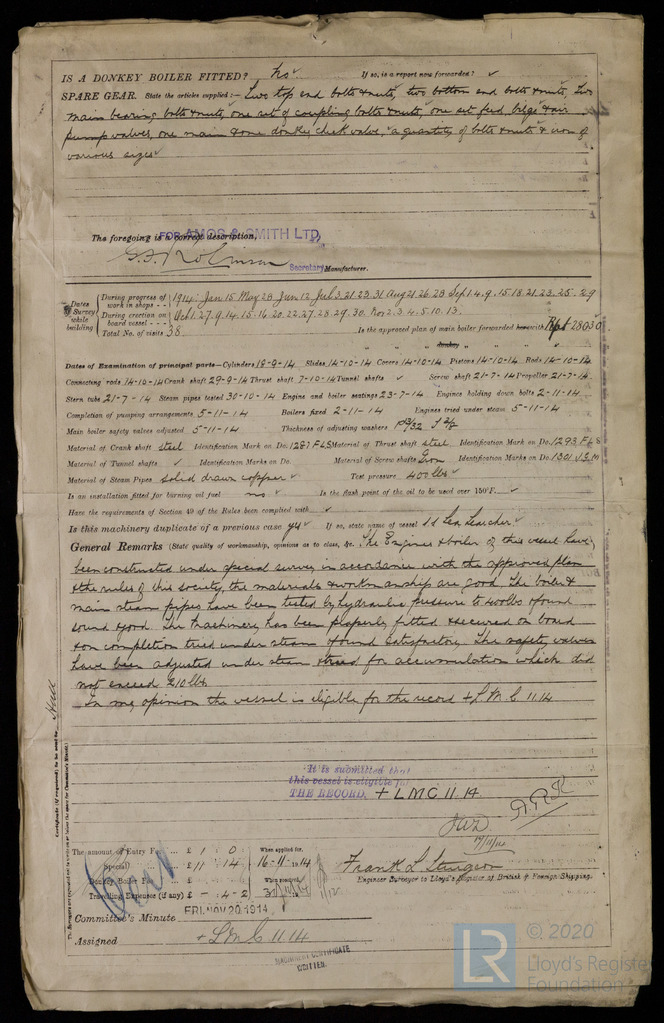 IS A DONKEY BOILER FITTED? No ✓ If so, is a report now forwarded? ✓
SPARE GEAR. State the articles supplied:— Two top end bolts & nuts, two bottom end bolts & nuts, two
main bearing bolts & nuts, one set of coupling bolts & nuts, one set feed, bilge & air
pump valves, one main & one donkey check valve, a quantity of bolts & nuts & iron of
various sizes
The foregoing is a correct description,
FOR AMOS & SMITH LTD.
Robinson
Secretary Manufacturer.
Dates of Survey while building
During progress of work in shops - - 1914: Jan 15 May 28 Jun 12 Jul 3.21.23.31 Aug 21.26.28 Sep 1.4.9.15.18.21.23.25.29
During erection on board vessel - - - Oct 1.27.9.14.15.16.20.22.27.28.29.30. Nov 2.3.4.5.10.13.
Total No. of visits 38. Is the approved plan of main boiler forwarded herewith Rpt 28030
" " " donkey " " "
Dates of Examination of principal parts—Cylinders 18-9-14 Slides 14-10-14 Covers 14-10-14 Pistons 14-10-14 Rods 14-10-14
Connecting rods 14-10-14 Crank shaft 29-9-14 Thrust shaft 7-10-14 Tunnel shafts ✓ Screw shaft 21-7-14 Propeller 21-7-14
Stern tube 21-7-14 Steam pipes tested 30-10-14 Engine and boiler seatings 23-7-14 Engines holding down bolts 2-11-14
Completion of pumping arrangements 5-11-14 Boilers fixed 2-11-14 Engines tried under steam 5-11-14
Main boiler safety valves adjusted 5-11-14 Thickness of adjusting washers
Material of Crank shaft steel Identification Mark on Do. 1287 FLS Material of Thrust shaft steel Identification Mark on Do. 1293 FLS
Material of Tunnel shafts ✓ Identification Marks on Do. Material of Screw shafts Iron Identification Marks on Do. 1301
Material of Steam Pipes solid drawn copper Test pressure 400 lbs
Is an installation fitted for burning oil fuel no ✓ Is the flash point of the oil to be used over 150°F. ✓
Have the requirements of Section 49 of the Rules been complied with ✓
Is this machinery duplicate of a previous case yes ✓ If so, state name of vessel s s Sea Searcher ✓
General Remarks (State quality of workmanship, opinions as to class, &c. The Engines & boiler of this vessel have
been constructed under special survey in accordance with the approved plan
& the rules of this society, the materials & workmanship are good. The boiler &
main steam pipes have been tested by hydraulic pressure to 400 lbs & found
sound & good. The Machinery has been properly fitted & secured on board
& on completion tried under steam & found satisfactory. The safety valves
have been adjusted under steam & tried for accumulation which did
not exceed 210 lbs.
In my opinion the vessel is eligible for the record + L M C 11.14
It is submitted that
this vessel is eligible for
THE RECORD. + LMC 11.14
JWD
17/11/14
The amount of Entry Fee £ 1 : 0 When applied for,
Special £ 11 : 14 16-11-1914
Donkey Boiler Fee £ When received,
Travelling Expenses (if any) £ - : 4-2
Frank L Sturgeon
Engineer Surveyor to Lloyd's Register of British & Foreign Shipping.
Committee's Minute FRI. NOV 20. 1914
Assigned + LMC 11.14
MACHINERY CERTIFICATE
WRITTEN.
Hull
Certificate (if required) to be sent to
© 2020
LR
Lloyd's Register
Foundation